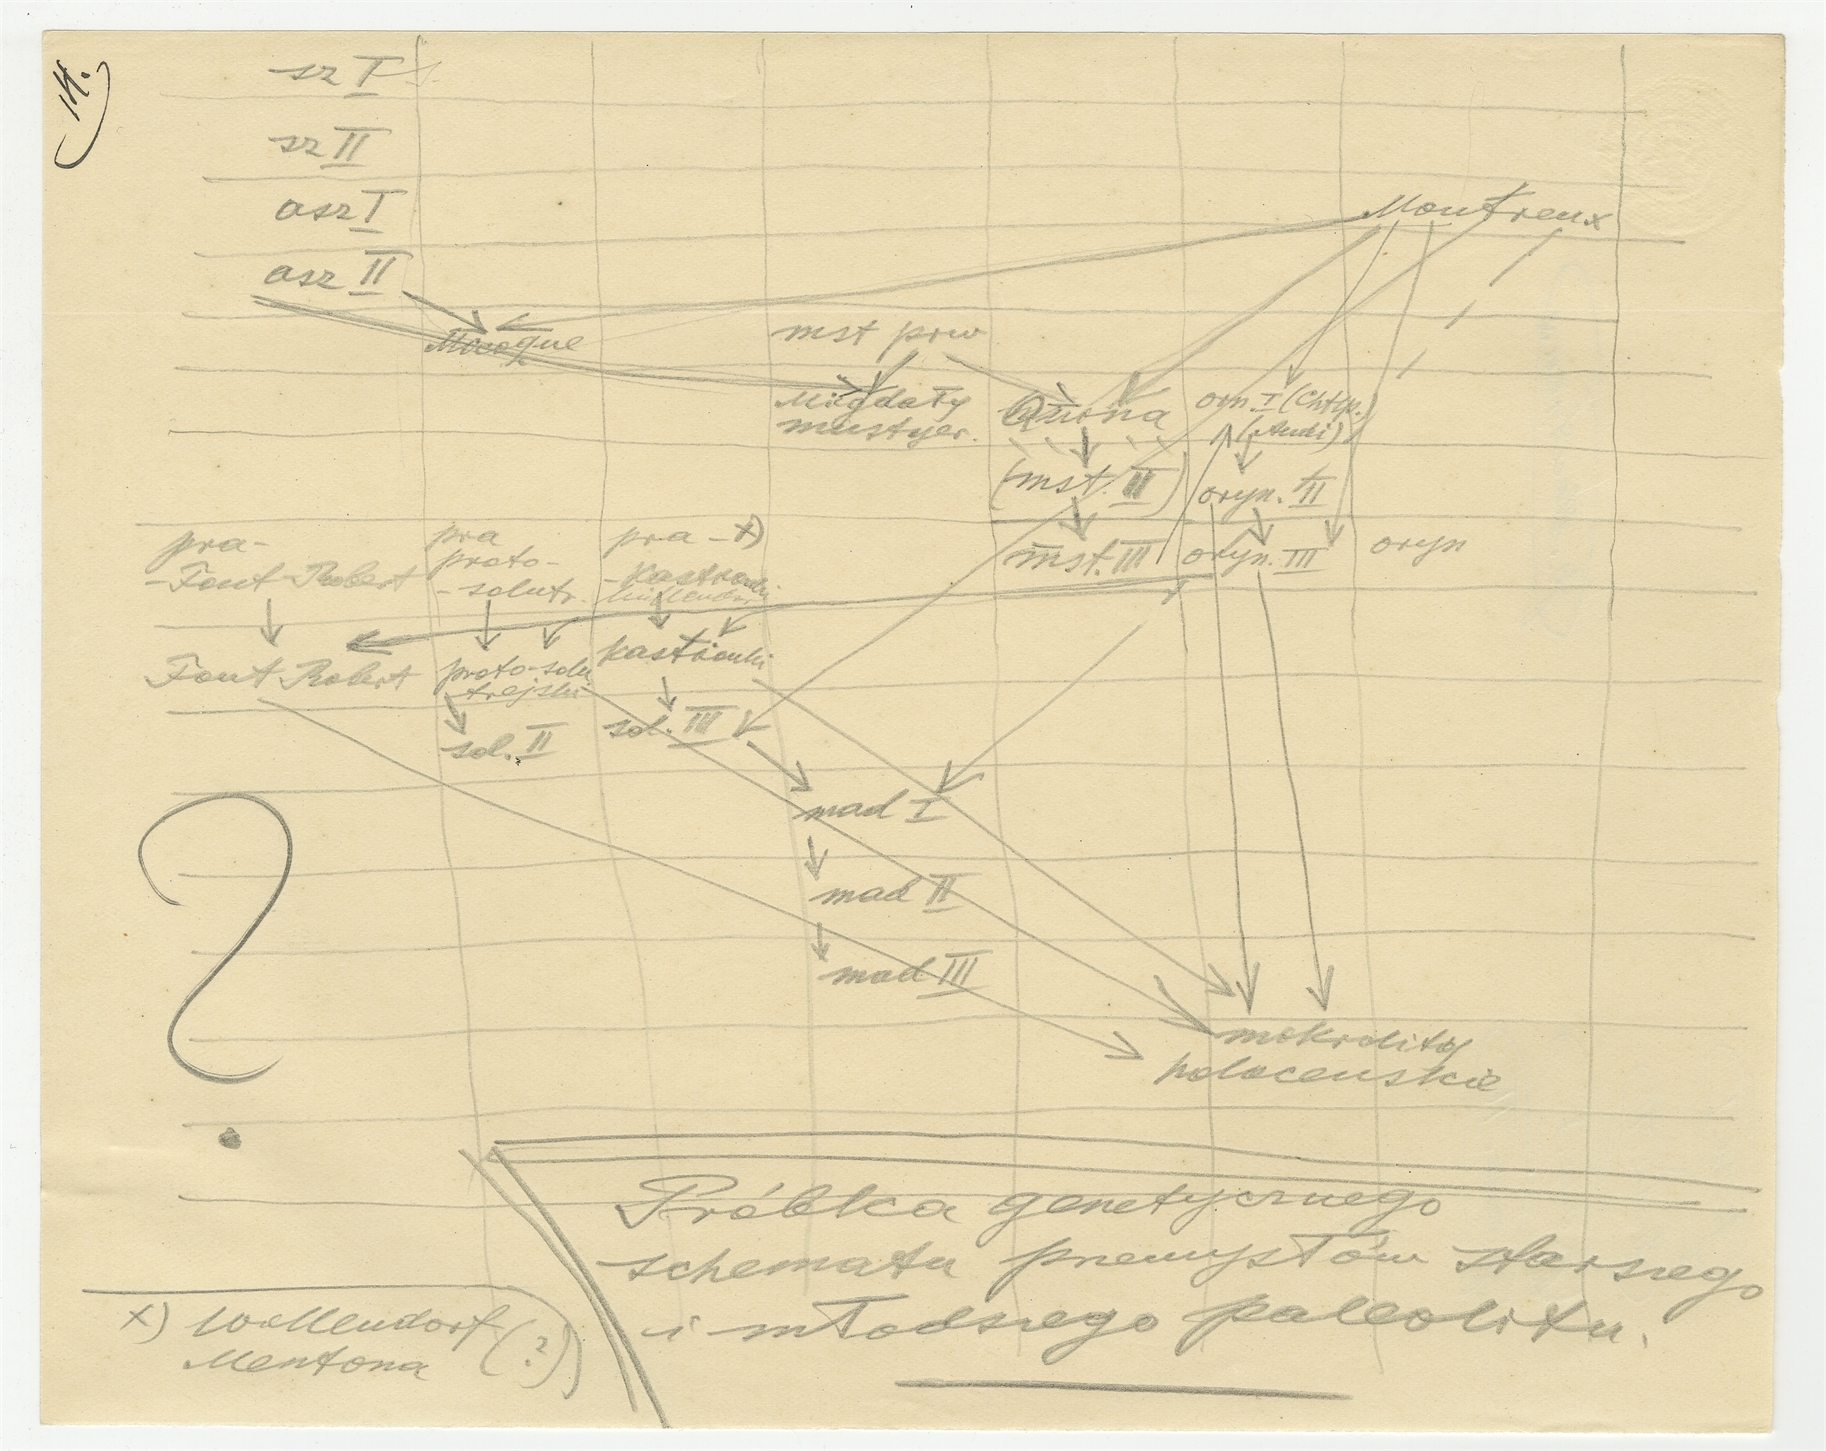 14.
sz I
sz II
asz I
asz II
Montreux
Micoque
mst prw
Migdały
mustyer.
Quina
oryn. I (Chtlp.)
(Audi)
(mst. II)
oryn. II
mst. III
oryn. III
oryn
pra-
-Font-Robert
pra
proto-
-solutr.
pra - x)
-kastionki
Font Robert
proto-solu
trejski
kastionki
sol. II
sol. III
mad I
mad II
mad III
mikrolity
polocenskie
Próbka genetycznego
schematu przemysłów starszego
i młodszego paleolitu.
x) Willendorf
Mentona (?)
?